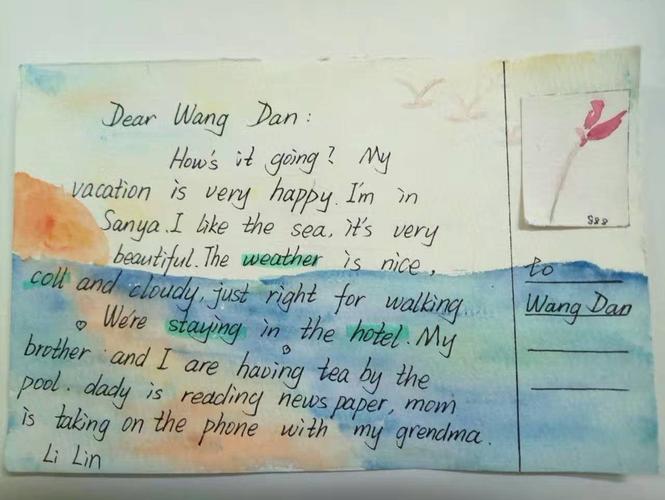 Dear Wang Dan:
How's it going? My
vacation is very happy. I'm in
Sanya. I like the sea, it's very
beautiful. The weather is nice,
coll and cloudy, just right for walking
We're staying in the hotel. My
brother and I are having tea by the
pool. dady is reading news paper, mom
is taking on the phone with my grendma.
Li Lin
888
to
Wang Dan